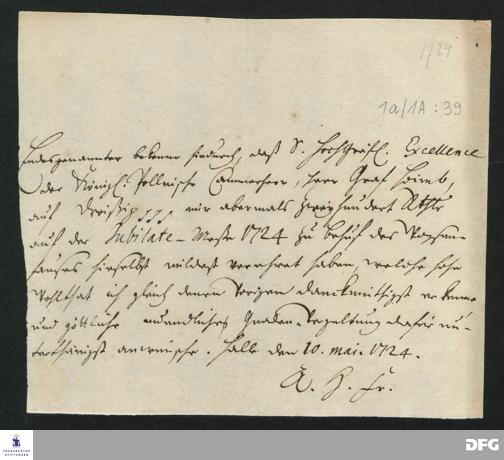 1724
1a/1A : 39
Endesgenannter bekenne hiedurch, daß S. Hochgräfl. Excellence
der Königl. Pollnische Cammerherr, Herr Graf Hoimb,
auf Dreißig mir abermals zweyhundert Rthlr
auf der Jubilate-Messe 1724 zu behuf des Waysen-
hauses hieselbst mildest verehret haben, welche hohe
Wohlthat ich gleich denen vorigen danckmüthigst erkenne
und göttliche unendliche Gnaden-Vergeltung dafür un-
terthänigst anwünsche. Halle den 10. mai. 1724.
A. H. Fr.
FRANCKESCHE
STIFTUNGEN
DFG